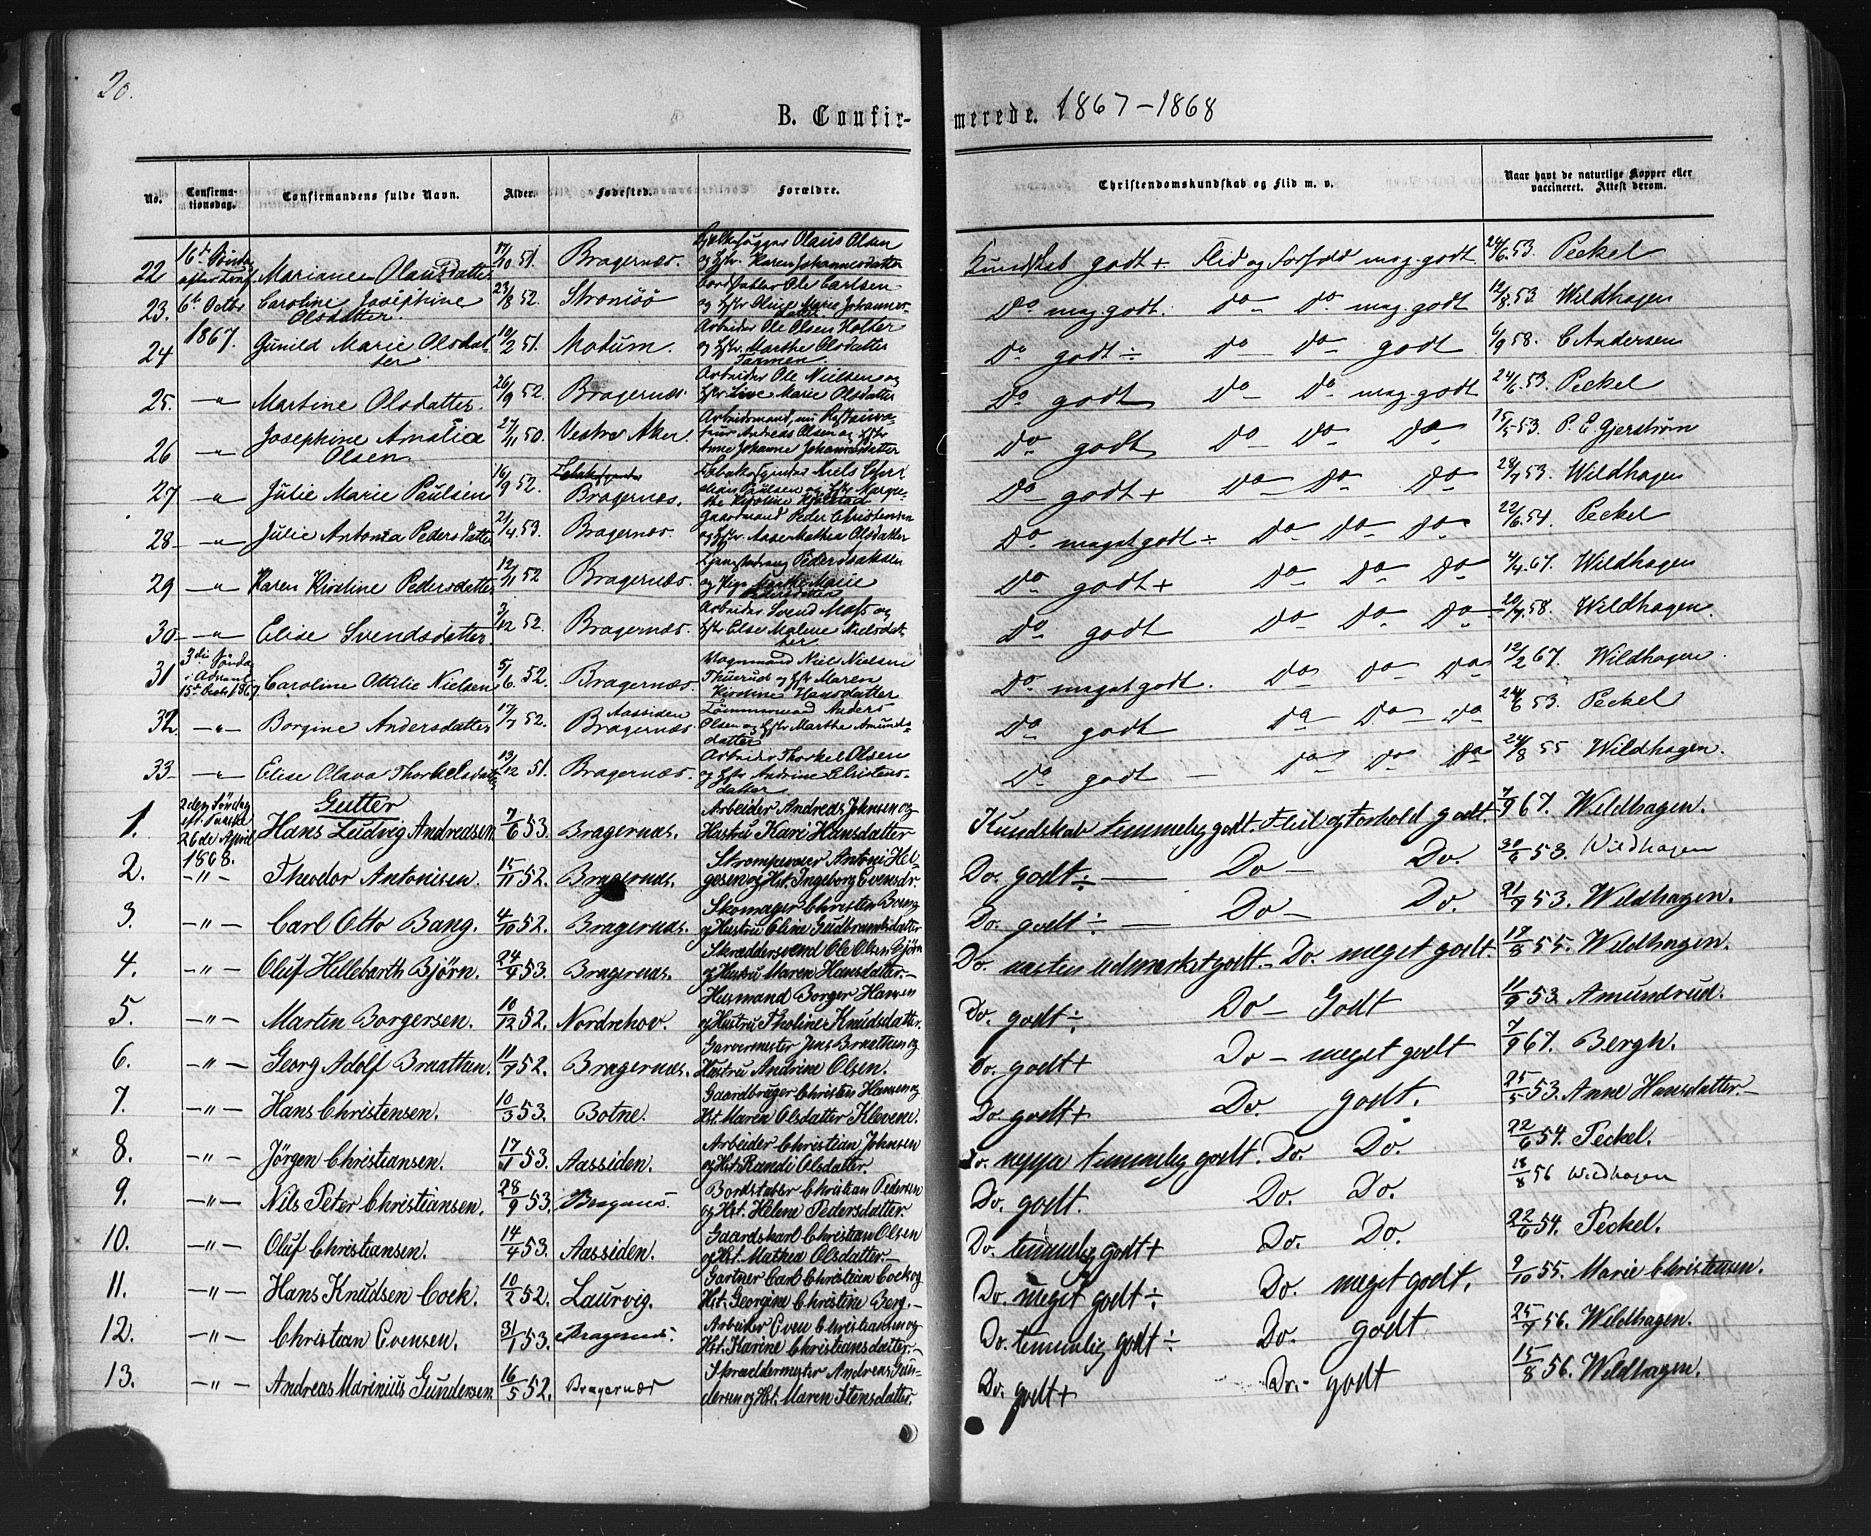 20.
B. Confirmerede. 1867-1868
No. Confirmationsdag. Confirmandens fulde Navn. Alder. Fødested. Forældre. Christendomskundskab og Flid m. v. Naar havt de naturlige Kopper eller vaccineret. Attest derom.
22 16de Søndag efter Mariane Olausdatter 17/10 51. Bragernæs. Olaus Olsen og Hstr. Karen Johannesdatter Kundskab godt + Flid og Forhold meg. godt 24/6 53. Peckel
23. 6te Octbr Caroline Josephine Olsdatter. 23/8 52. Strømsö Ole Carlsen og Hstr Oline Marie Johannesdatter Do meg. godt. Do Do meg godt 12/8 53. Wildhagen
24 1867. Gunild Marie Olsdatter 10/2 51. Modum. Arbeider Ole Olsen Holter og Hstr. Marthe Olsdatter Do godt ÷ Do Do godt 6/9 58. C Andersen
25. -"- Martine Olsdatter. 26/9 52. Bragernæs. Arbeider Ole Nielsen og Hstr Live Marie Olsdatter Do godt Do Do meg godt 24/6 53. Peckel
26 -"- Josephine Amalia Olsen 27/11 50. Vestre Aker. Arbeidsmand, nu Andreas Olsen og Hstr Anne Johanne Johannesdatter Do godt Do Do Do 15/5 53. P. E. Gjerstrøm
27 -"- Julie Marie Paulsen 16/9 52. Bragernæs. Niels Christian Paulsen og Hstr Kirstine Do godt + Do Do Do 28/7 53. Wildhagen
28 -"- Julie Antonia Pedersdatter 21/4 53. Bragernæs. Gaardmand Peder Christensen og Hstr. Anne Mathea Olsdatter Do meget godt ÷ Do Do Do 22/6 54. Peckel
29 -"- Karen Kirstine Pedersdatter 12/11 52 Bragernæs. Peder Isaksen og Marie Do godt + Do Do Do 4/4 67. Wildhagen
30 -"- Elise Svendsdatter 3/12 52. Bragernæs. Arbeider Svend og Hstr Else Malene Nielsdatter Do godt Do Do Do 20/7 58. Wildhagen.
31 3die Søndag i Advent 15de Decbr 1867 Caroline Ottilie Nielsen 5/6 52. Bragernæs. Vognmand Niels Nielsen Thuerud og Hstr Maren Kirstine Hansdatter Do meget godt. Do Do Do 12/2 67. Wildhagen.
32 -"- Borgine Andersdatter 17/7 52. Aassiden Bragernæs Tømmermand Anders Olsen og Hstr Marthe Amundsdatter Do godt Do Do Do 24/6 53. Peckel
33 -"- Elise Olava Thorkelsdatter 13/12 51. Bragernæs. Arbeider Thorkel Olsen og Hstr Andrine Christensdatter Do godt Do Do Do 24/8 55 Wildhagen.
Gutter
1. 2den Søndag eft. Paaske 26de April Hans Ludvig Andreasen 7/6 53. Bragernæs. Arbeider Andreas Johnsen og Hustru Kari Hansdatter Kundskab temmelig godt. Flid og Forhold godt. 7/9 67. Wildhagen.
2. 1868. -"- Theodor Antonisen. 15/11 52. Bragernæs. Antoni Helgesen og Hst. Ingeborg Evensdr. Do. godt ÷ Do Do. 30/6 53. Wildhagen
3. -"- Carl Otto Bang. 4/10 52. Bragernæs. Skomager Christen Bang og Hustru Eline Gudbrandsdatter Do. godt ÷ Do Do. 21/9 53. Wildhagen.
4. -"- Oluf Hillebarth Björn. 24/9 53. Bragernæs. Skræddersvend Ole Olsen Björn og Hustru Maren Hansdatter. Do. næsten udmærket godt. Do. meget godt. 17/8 55. Wildhagen.
5. -"- Martin Borgersen. 10/12 52. Nordrehov. Husmand Borger Hansen og Hustru Tholine Knudsdatter. Do. godt ÷. Do Godt 11/9 53. Amundrud.
6. -"- Georg Adolf Braathen. 11/7 52. Bragernæs. Garvermester Jens Braathen og Hustru Andrine Olsen. Do. godt + Do meget godt 7/9 67. Bergh.
7. -"- Hans Christensen. 10/3 53. Botne. Gaardbruger Christen Hansen og Hst. Maren Olsdatter Klevene. Do. godt + Do. godt. 25/5 53. Anne Hansdatter.
8. -"- Jörgen Christiansen. 17/11 53. Aassiden. Arbeider Christian Johnsen og Hst. Randi Olsdatter. Do. neppe temmelig godt. Do. Do. 22/6 54. Peckel.
9. -"- Nils Peter Christiansen. 28/9 53. Bragernæs. Bordstabler Christian Pedersen og Hst. Helene Pedersdatter Do. godt. Do. Do. 18/8 56 Wildhagen
10. -"- Oluf Christiansen. 14/4 53. Aassiden. Gaardskarl Christian Olsen og Hst. Mathea Olsdatter Do. temmelig godt + Do. Do. 22/6 54. Peckel.
11. -"- Hans Knudsen Cock. 10/2 52. Laurvig. Gartner Carl Christian Cock og Hst. Georgine Christine Berg. Do. meget godt ÷. Do. meget godt. 9/10 55. Marie Christensen.
12. -"- Christian Evensen. 31/1 53. Bragernæs. Arbeider Even Christiansen og Hst. Karine Christiansdatter. Do. temmelig godt ÷ Do. godt 25/7 56. Wildhagen.
13. -"- Andreas Marinius Gundersen 16/5 52. Bragernæs Andreas Gundersen og Hst. Maren Stensdatter. Do. godt + Do. godt 15/8 56. Wildhagen.